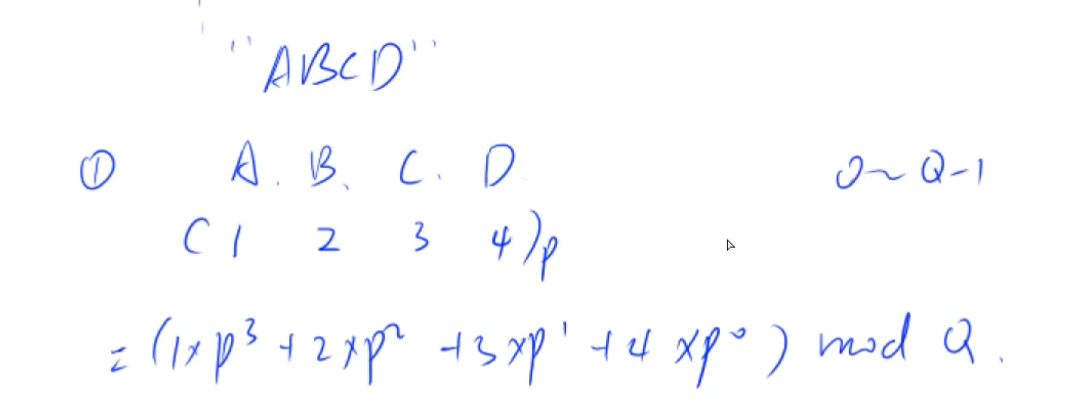 "ABCD"
① A. B. C. D. 0~Q-1
(1 2 3 4)p
= (1×p³ + 2×p² + 3×p¹ + 4×p⁰) mod Q.